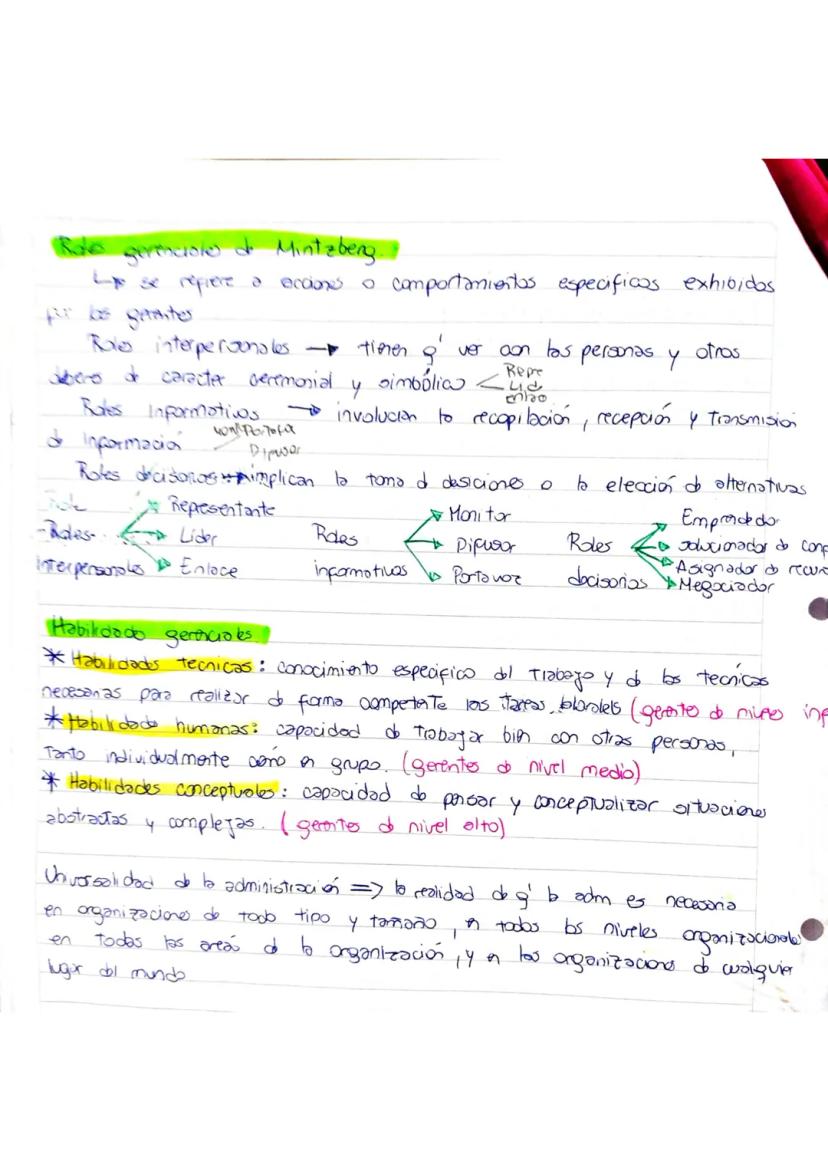 Roles gerenciales de Mintzberg.
↳ se refiere a acciones o comportamientos especificos exhibidos
por los gerentes
Roles interpersonales → tienen q' ver con las personas y otros
deberes de caracter ceremonial y simbólico < Repr
Lid
enlac
Roles Informativos → involucran la recopilación, recepción y transmision
de información
Portavoz
Difusor
Roles decisorios → implican la toma d desiciones o la elección de alternativas
Role
-Roles-
Interpersonales
Representante
Líder
Enlace
Roles
informativos
Monitor
Difusor
Portavoz
Roles
decisorios
Emprendedor
solucionador de conf
Asignador de recur
Negociador
Habilidades gerenciales
* Habilidades tecnicas: conocimiento especifico del trabajo y de las tecnícas
necesarias para realizar de forma competente las tareas laborales (gerentes de niveles inf
* Habilidades humanas: capacidad de trabajar bien con otras personas,
tanto individualmente como en grupo. (gerentes de nivel medio)
* Habilidades conceptuales: capacidad de pensar y conceptualizar situaciones
abstractas y complejas. (gerentes de nivel alto)
Universalidad de la administración => la realidad de q' la adm es necesaria
en organizaciones de todo tipo y tamaño, en todos los niveles organizacionales
en todas las areas de la organización, y en las organizaciones de cualquier
lugar del mundo